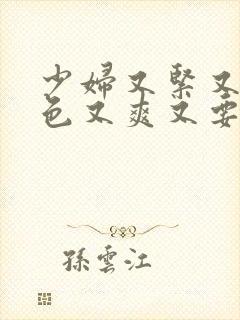 少婦又緊又
色又爽又要
孫雲江